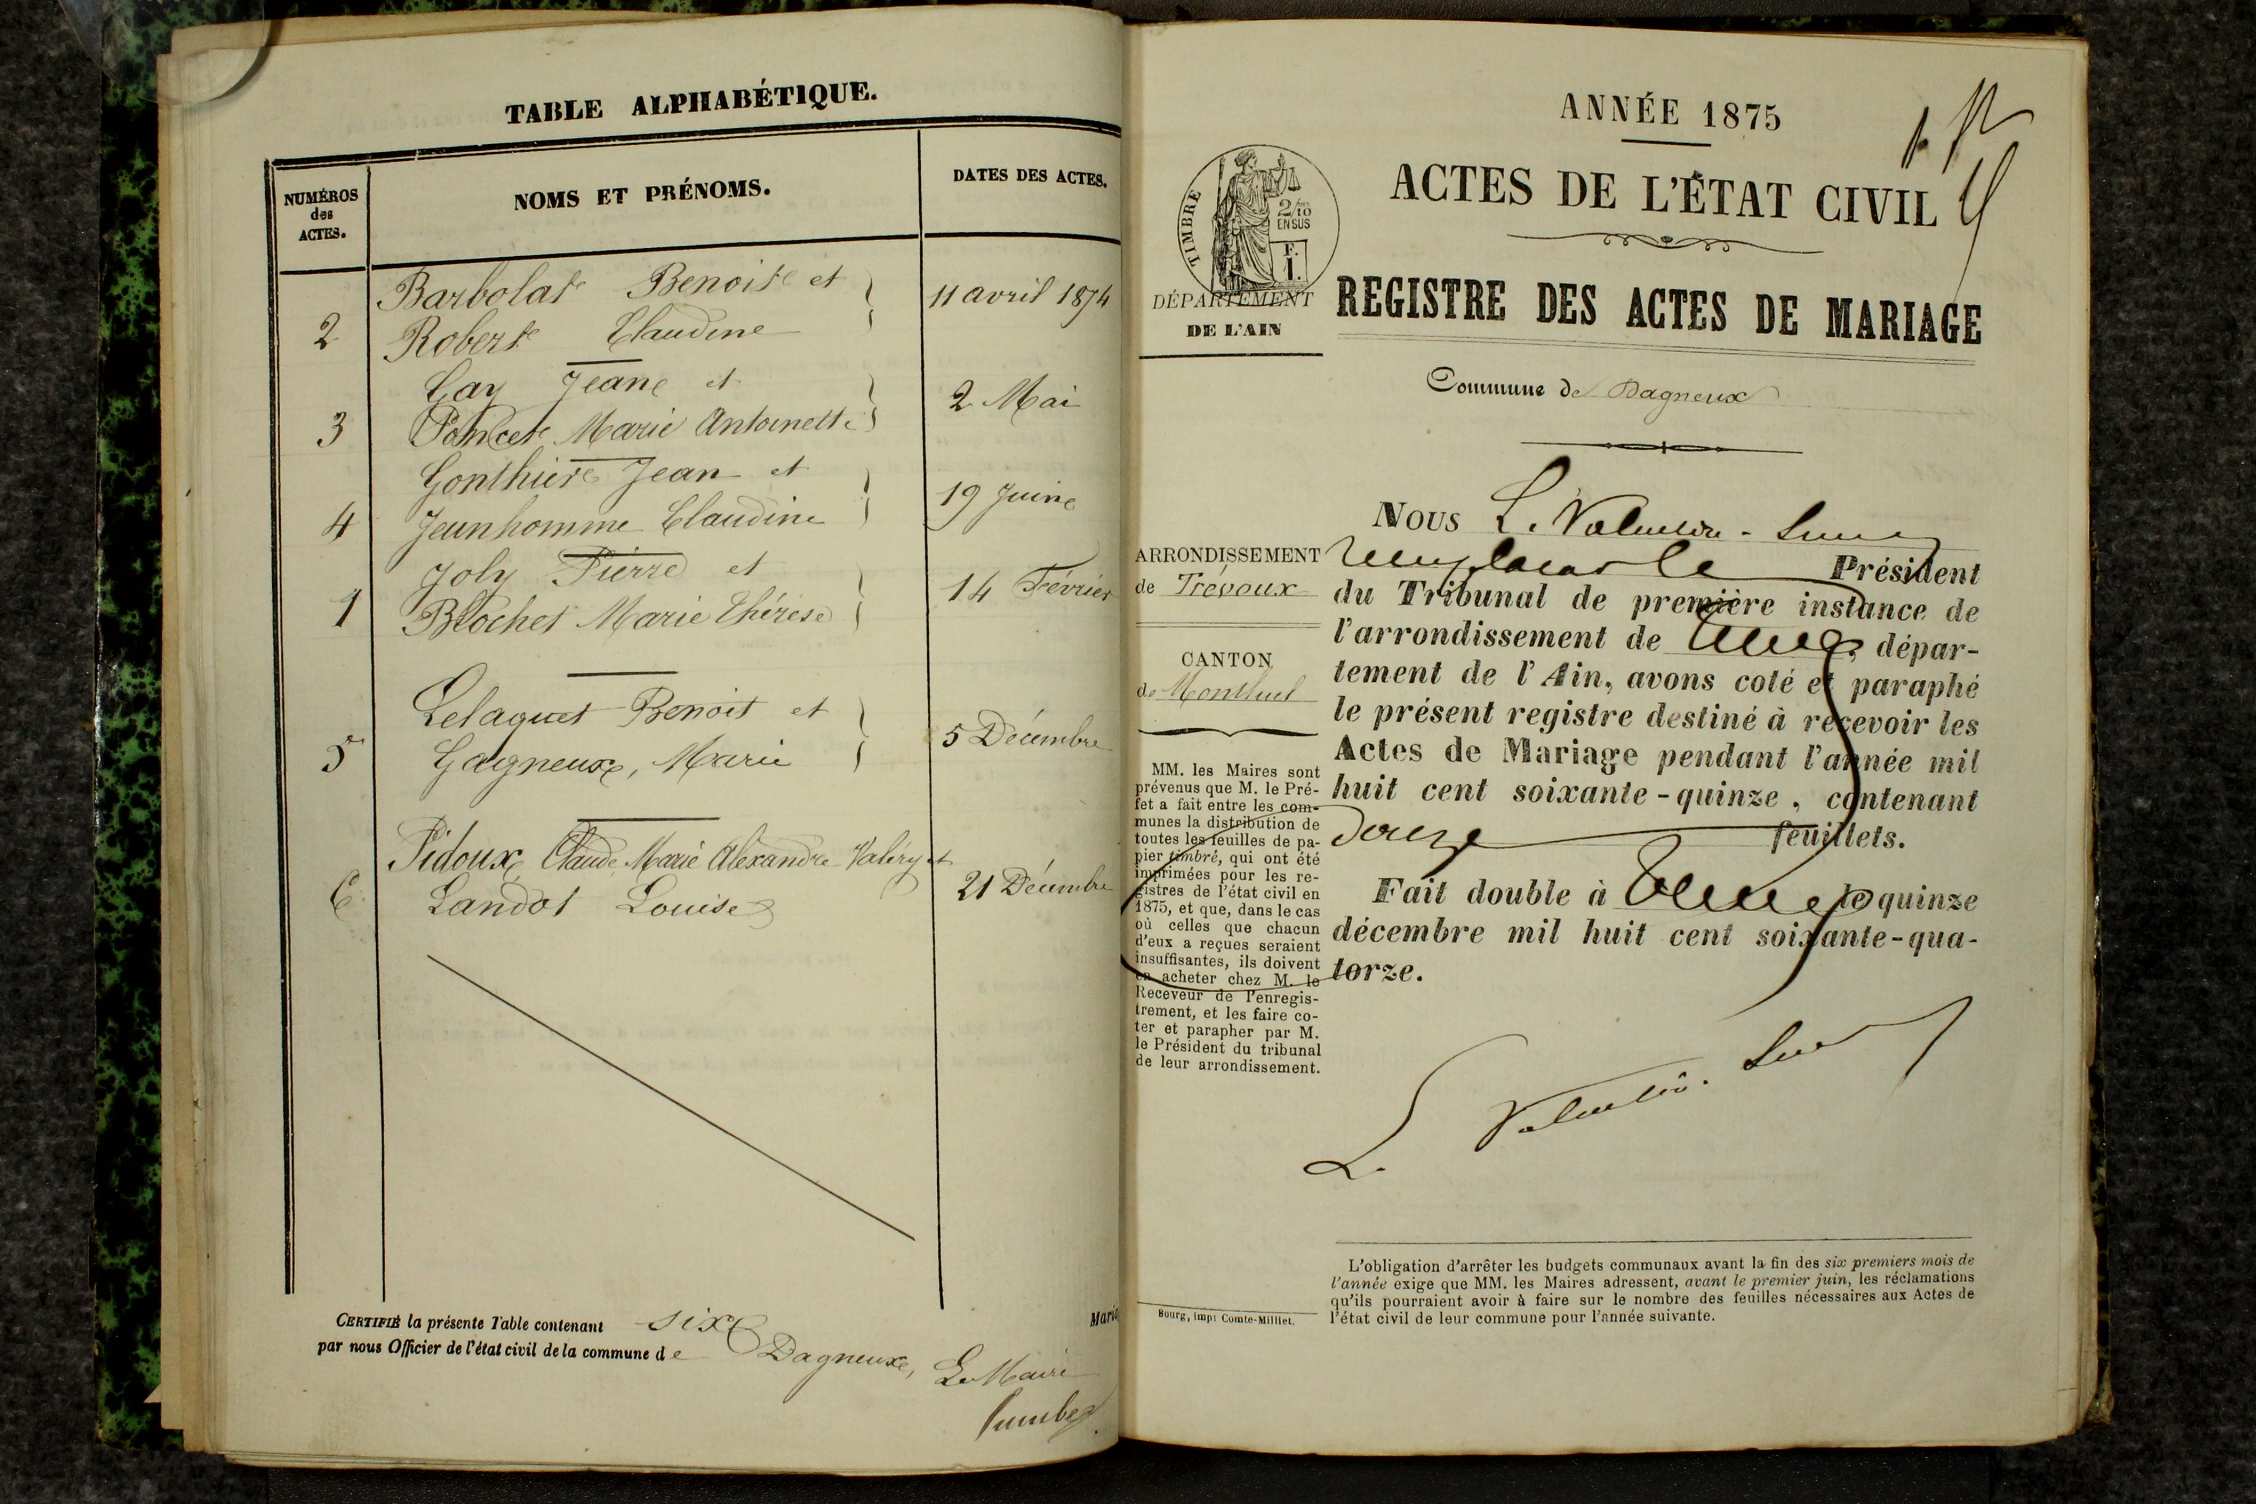 TABLE ALPHABÉTIQUE.
NUMÉROS
des
ACTES.
NOMS ET PRÉNOMS.
DATES DES ACTES.
Barbolat Benoit et
11 avril 1874
2
Robert Claudine
Gay Jean et
2 Mai
3
Poncet Marie Antoinette
Gonthier Jean et
19 Juin
4
Jeunhomme Claudine
Joly Pierre et
14 Février
1
Blochet Marie Thérèse
Lelaquet Benoit et
5 Décembre
5
Gagneux, Marie
Pidoux Claude Marie Alexandre Valéry et
21 Décembre
6
Landot Louise
CERTIFIÉ la présente Table contenant six
Maria
par nous Officier de l'état civil de la commune de Dagneux,
Le Maire
ANNÉE 1875
ACTES DE L'ÉTAT CIVIL
TIMBRE
2/10
EN SUS
F.
1.
DÉPARTEMENT
DE L'AIN
REGISTRE DES ACTES DE MARIAGE
Commune de Dagneux
ARRONDISSEMENT
de Trévoux
CANTON
de Montluel
MM. les Maires sont
prévenus que M. le Pré-
fet a fait entre les com-
munes la distribution de
toutes les feuilles de pa-
pier timbré, qui ont été
imprimées pour les re-
gistres de l'état civil en
1875, et que, dans le cas
où celles que chacun
d'eux a reçues seraient
insuffisantes, ils doivent
en acheter chez M. le
Receveur de l'enregis-
trement, et les faire co-
ter et parapher par M.
le Président du tribunal
de leur arrondissement.
Bourg, imp. Comte-Milliet.
NOUS L. Valentin-
Président
du Tribunal de première instance de
l'arrondissement de dépar-
tement de l'Ain, avons coté et paraphé
le présent registre destiné à recevoir les
Actes de Mariage pendant l'année mil
huit cent soixante-quinze, contenant
douze feuillets.
Fait double à le quinze
décembre mil huit cent soixante-qua-
torze.
L. Valentin.
L'obligation d'arrêter les budgets communaux avant la fin des six premiers mois de
l'année exige que MM. les Maires adressent, avant le premier juin, les réclamations
qu'ils pourraient avoir à faire sur le nombre des feuilles nécessaires aux Actes de
l'état civil de leur commune pour l'année suivante.